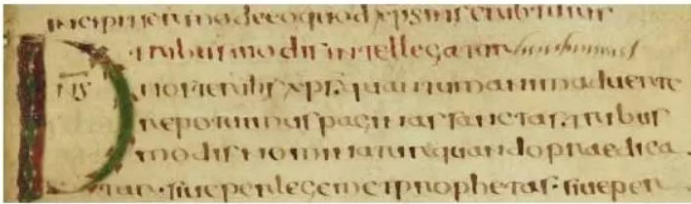 incipit sermo de eo quod xps in scribturis
tribus modis intellegatur
DNS noster ihs xps quantum animaduerte
re potuimus paginas sanctas. tribus
modis nominatur quando praedica
tur. siue per legem et prophetas. siue per